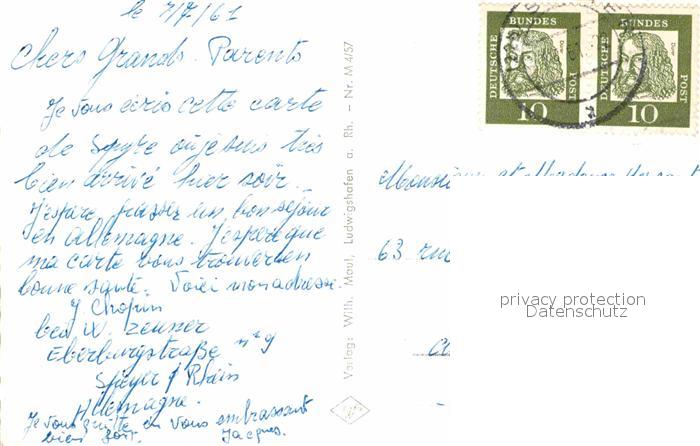 le 7/7/61
Chers Grands-Parents
Je vous écris cette carte
de Spyre ou je suis très
bien arrivé hier soir.
J'espère passer un bon séjour
en Allemagne. J'espère que
ma carte vous trouver en
bonne santé. Voici mon adresse
J Chopin
bei W. Zeuner
Eberburgstraße n° 9
Speyer / Rhein
Allemagne.
Je vous quitte en vous embrassant
bien fort. Jacques.
Verlag: Wilh. Maul, Ludwigshafen a. Rh. – Nr. M 4/57
DEUTSCHE BUNDES POST
10
DEUTSCHE BUNDES POST
10
63 rue
privacy protection
Datenschutz